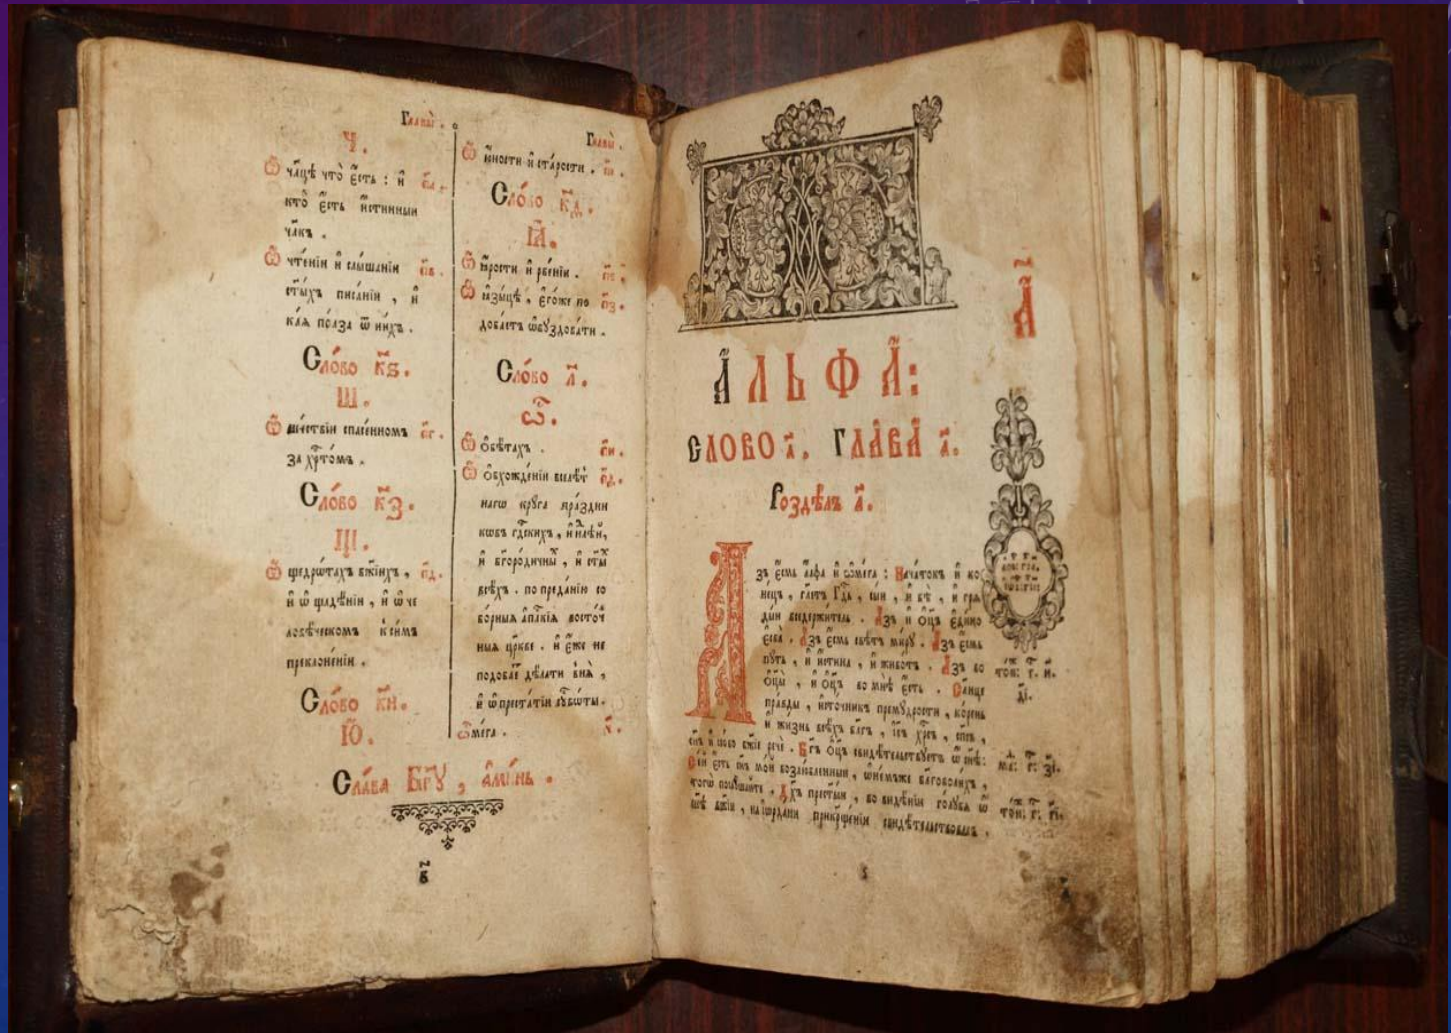 Главы.
Ч.
Ѿ чл҃цѣ что̀ є҆́сть : и҆
кто̀ є҆́сть и҆́стинныи
чл҃къ .
Ѿ чте́нїи и҆ слы́шанїи п҃в .
ст҃ы́хъ писа́нїи , и҆
ка́ѧ по́лза ѿ ни́хъ .
Сло́во к҃ѕ .
Ш .
Ѿ ше́ствїи спасе́нномъ п҃г .
за хрⷭ҇то́мъ .
Сло́во к҃з .
Щ .
Ѿ щедро́тахъ бж҃їихъ , п҃д .
и҆ ѡ҆ щадѣ́нїи , и҆ ѡ҆ че
ловѣ́ческомъ к си́мъ
преклоне́нїи .
Сло́во к҃и .
Ю .
Главы .
Ѿ ю҆́ности и҆ ста́рости . п҃є .
Сло́во к҃д .
Ꙗ҆ .
Ѿ ꙗ҆́рости и҆ рве́нїи .
Ѿ ꙗ҆зы́цѣ , є҆го́же по п҃з .
доба́етъ ѡ҆бꙋздова́ти .
Сло́во л҃ .
Ѿ .
Ѿ ѻ҆бѣ́тахъ . п҃и .
Ѿ ѻ҆бхожде́нїи вселѣ́т п҃ѳ .
нагѡ крꙋ́га пра́здни
кѡвъ гдⷭ҇кихъ ,
и҆ бг҃оро́дичны , и҆ ст҃ы́
всѣ́хъ . по преда́нїю со
бо́рныѧ а҆пⷭ҇лкїѧ восто́ч
ныѧ цр҃кве . и҆ є҆́же не
подоба́є дѣ́лати в нѧ̀ ,
и҆ ѡ҆ преста́тїи сꙋббѡ́ты .
Ѿме́га . ч҃ .
Сла́ва Бг҃ꙋ , а҆ми́нь .
в҃
А҃
А҆ЛЬФА҆:
СЛОВО а҃. ГЛАВА а҃.
Роздѣ́лъ а҃.
Азъ є҆́смь а҆́лфа и҆ ѡ҆ме́га : Нача́токъ и҆ ко
не́цъ , гл҃етъ гдⷭ҇ь , сы́и , и҆ бѣ̀ , и҆ грѧ
ды́и вседержи́тель . А҆́зъ и҆ ѻ҆ц҃ъ є҆ди́но
є҆сва̀ . А҆́зъ є҆́смь свѣ́тъ ми́рꙋ . А҆́зъ є҆́смь
пꙋ́ть , и҆ и҆́стина , и҆ живо́тъ . А҆́зъ во
ѻ҆ц҃ы̀ , и҆ ѻ҆ц҃ъ во мнѣ̀ є҆́сть . Со́лнце
пра́вды , и҆сто́чникъ премꙋ́дрости , ко́рень
и҆ жи́знь всѣ́хъ бл҃гъ , і҆и҃съ хрⷭ҇то́съ , сп҃съ ,
сн҃ъ и҆ сло́во бж҃їе речѐ . Бг҃ъ ѻ҆ц҃ъ свидѣ́тельствꙋетъ ѡ҆ сн҃ѣ :
Се́й є҆́сть сн҃ъ мо́й возлю́бленныи , ѡ҆ не́мъже бл҃говоли́хъ ,
тогѡ̀ послꙋ́шайте . Дх҃ъ прест҃ы́и , во видѣ́нїи го́лꙋбѧ ѡ҆
сн҃ѣ бж҃їи , на і҆ѻрда́ни при кр҃ще́нїи свидѣ́тельствовалъ .
і҆ѻ҃ : г҃ . и҃ .
д҃і .
ма҃ : г҃ : з҃і .
і҆ѻ҃ : г҃ : п҃і .